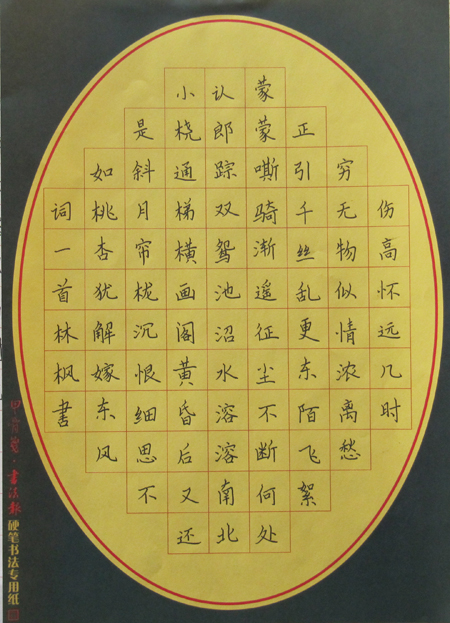 伤高怀远几时
穷无物似情浓离愁
正引千丝乱更东陌飞絮
蒙蒙嘶骑渐遥征尘不断何处
认郎踪双鸳池沼水溶溶南北
小桡通梯横画阁黄昏后又还
是斜月帘栊沉恨细思不
如桃杏犹解嫁东风
词一首林枫书
书法报
硬笔书法专用纸